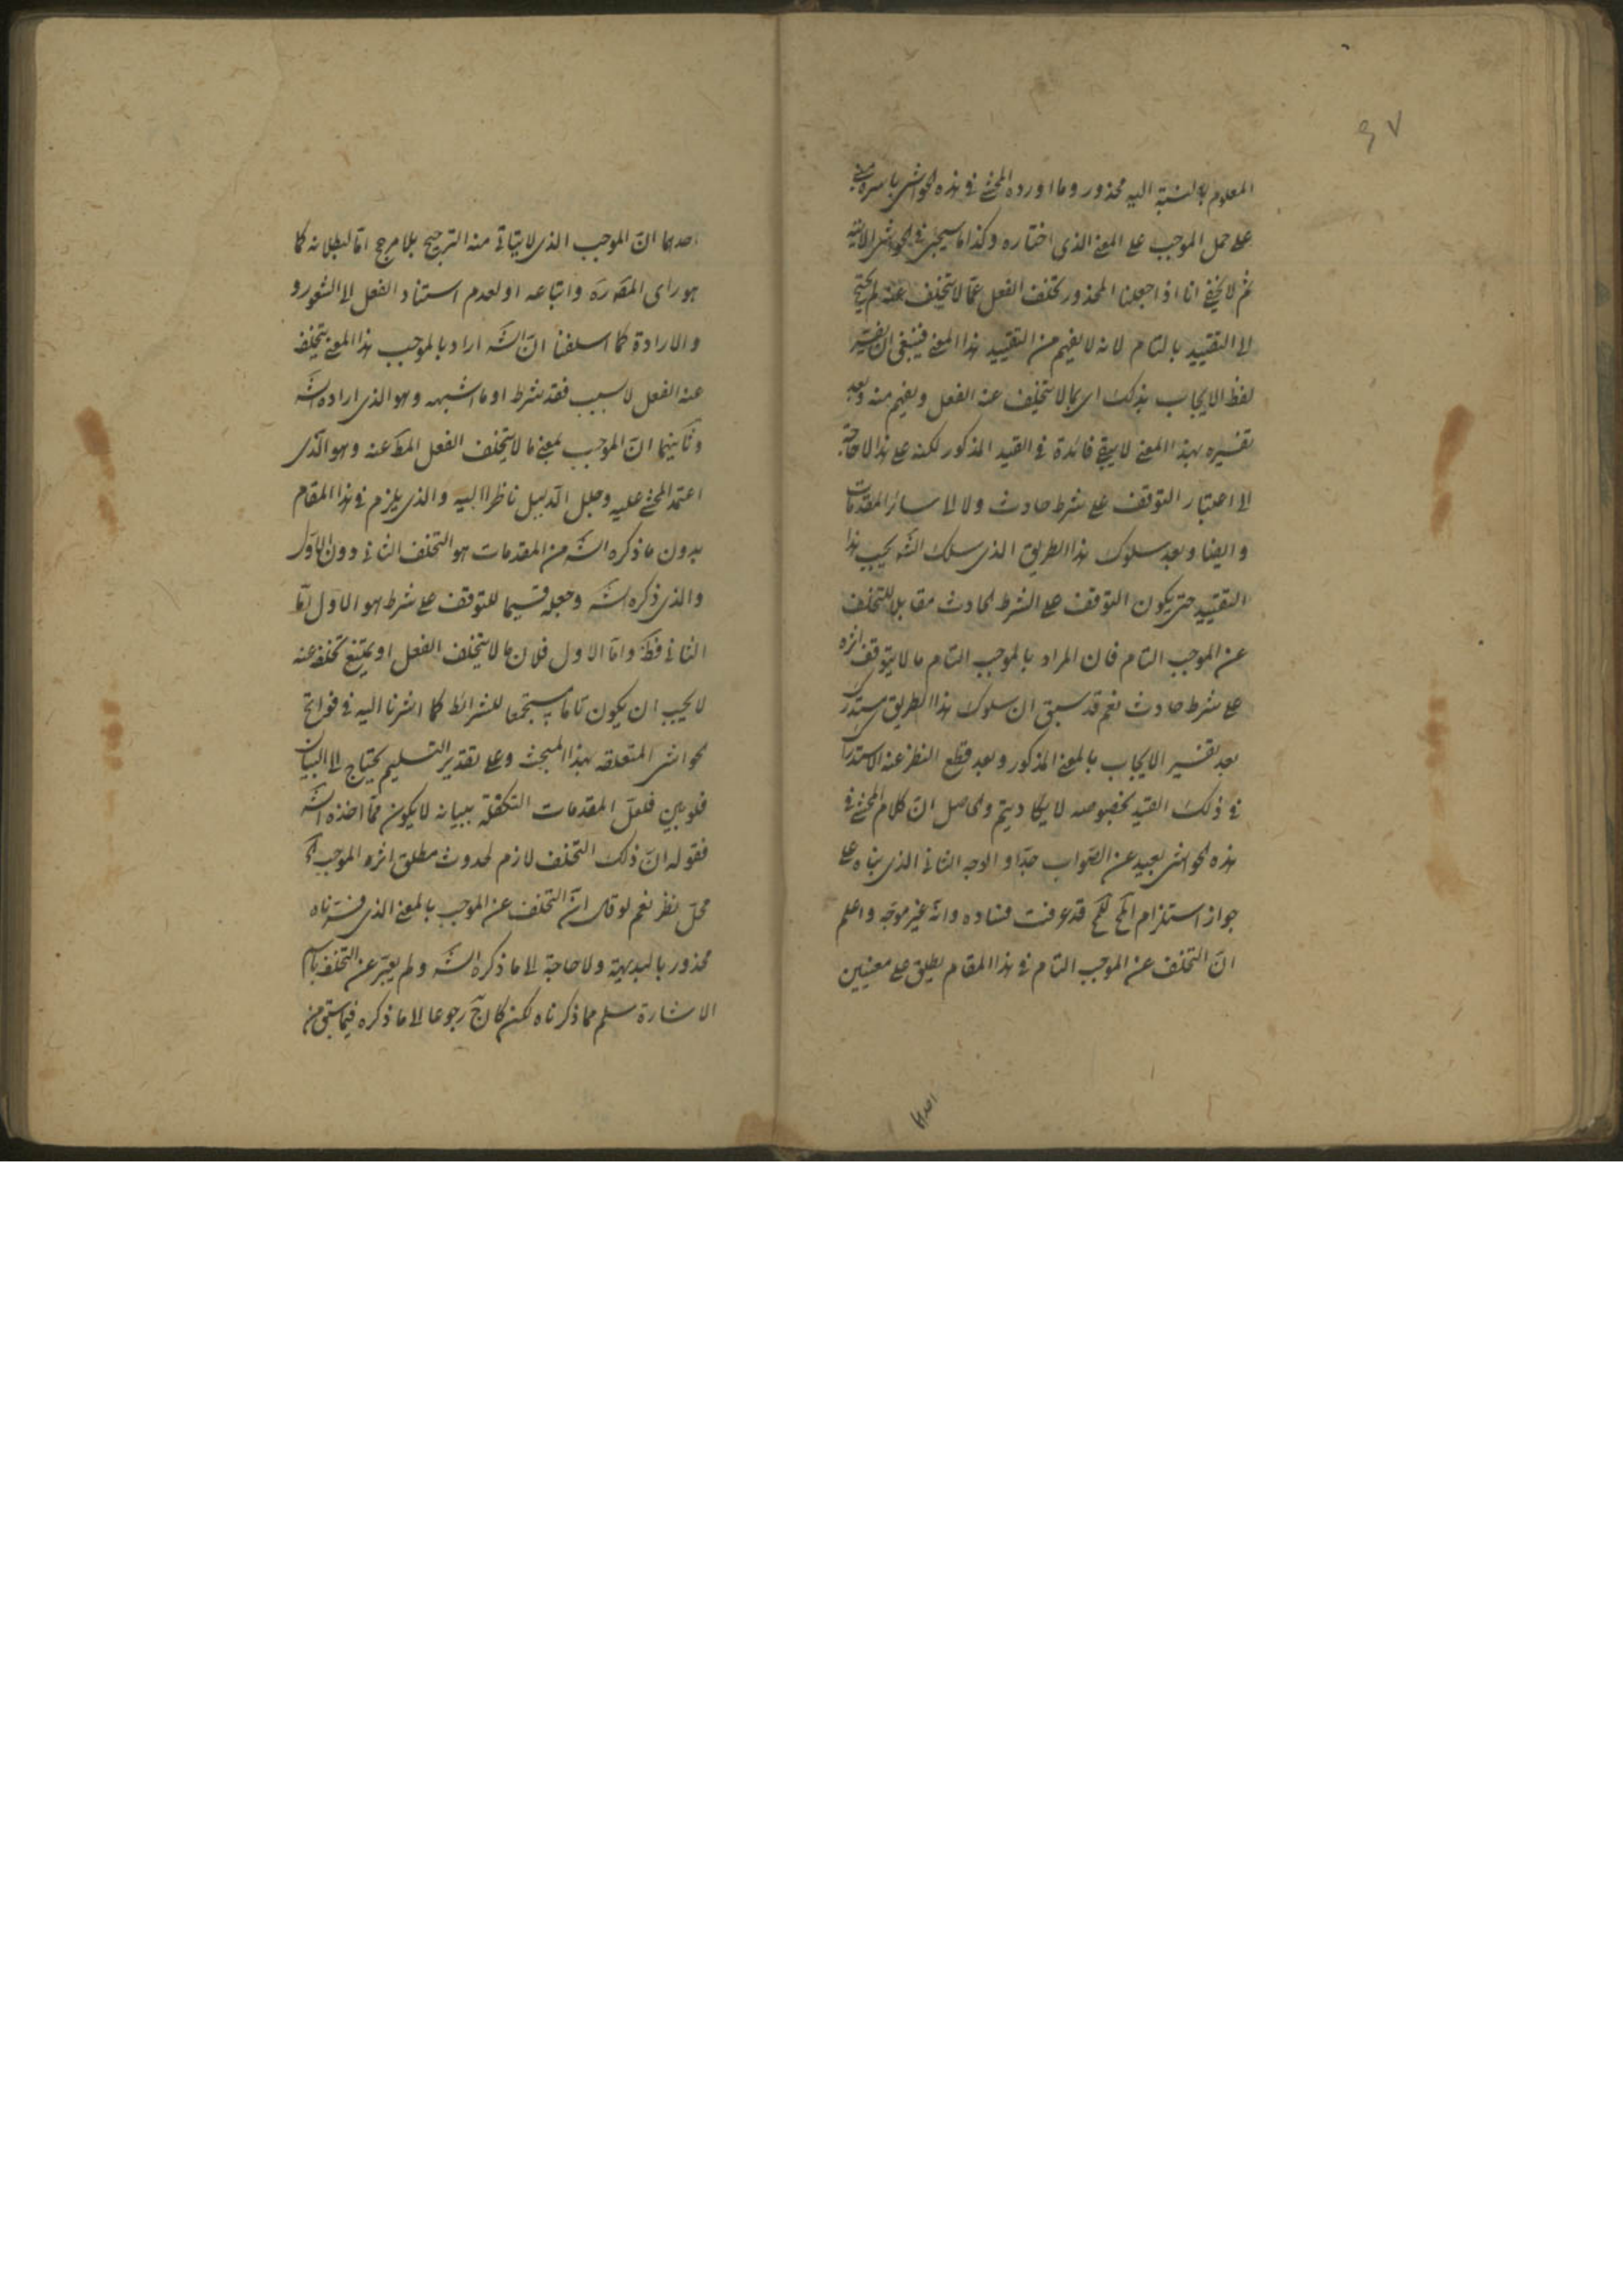 ٤٧
المعلوم بالنسبة اليه محذور وما اورده المحشى فى هذه الحواشى باسره مبنى
على حمل الموجب على المعنى الذى اختاره وكذا ما سيجئ فى الحواشى الاتية
ثم لا يخفى انا اذا جعلنا المحذور تخلف الفعل عما لا يتخلف عنه لم يحتج
الى التقييد بالتام لانه لا يفهم من التقييد هذا المعنى فينبغى ان يفسر
لفظ الايجاب بذلك اى بما لا يتخلف عنه الفعل ويفهم منه وبعد
تفسيره بهذا المعنى لا يبقى فائدة فى القيد المذكور لكنه على هذا لا حاجة
الى اعتبار التوقف على شرط حادث ولا الى سائر المقدمات
وايضا وبعد سلوك هذا الطريق الذى سلك الشه يجب هذا
التقييد حتى يكون التوقف على الشرط الحادث مقابلا للتخلف
عن الموجب التام فان المراد بالموجب التام ما لا يتوقف اثره
على شرط حادث نعم قد سبق ان سلوك هذا الطريق مستدرك
بعد تفسير الايجاب بالمعنى المذكور وبعد قطع النظر عن الاستدراك
فى ذلك القيد بخصوصه لا يكاد يتم والحاصل ان كلام المحشى فى
هذه الحواشى بعيد عن الصواب جدا والوجه الثانى الذى بناه على
جواز استلزام المح للمح قد عرفت فساده وانه غير موجه واعلم
ان التخلف عن الموجب التام فى هذا المقام يطلق على معنيين
احدهما
احدهما ان الموجب الذى لا يتأتى منه الترجيح بلا مرجح اما لبطلانه كما
هو راى المقررة واتباعه او لعدم استناد الفعل الى الشعور و
والارادة كما اسلفنا ان الشه اراد بالموجب هذا المعنى يتخلف
عنه الفعل لا بسبب فقد شرط او ما اشبهه وهو الذى اراده الشه
وثانيهما ان الموجب بمعنى ما لا يتخلف الفعل المط عنه وهو الذى
اعتمد المحشى عليه وجعل الدليل ناظرا اليه والذى يلزم فى هذا المقام
بدون ما ذكره الشه من المقدمات هو التخلف الثانى دون الاول
والذى ذكره الشه وجعله قسيما للتوقف على شرط هو الاول اما
الثانى فظ واما الاول فلان ما لا يتخلف الفعل او يمتنع تخلفه عنه
لا يجب ان يكون تاما مستجمعا للشرائط كما اشرنا اليه فى فواتح
الحواشى المتعلقه بهذا المبحث وعلى تقدير التسليم يحتاج الى البيان
فلو بين فلعل المقدمات المتكفلة ببيانه لا يكون مما اخذه الشه
فقوله ان ذلك التخلف لازم لحدوث مطلق اثر الموجب الخ
محل نظر نعم لو قال ان التخلف عن الموجب بالمعنى الذى فسرناه
محذور بالبديهة ولا حاجة الى ما ذكره الشه ولم يعبر عن التخلف باسم
الاشارة سلم مما ذكرناه لكن كان ح رجوعا الى ما ذكره فيما سبق من